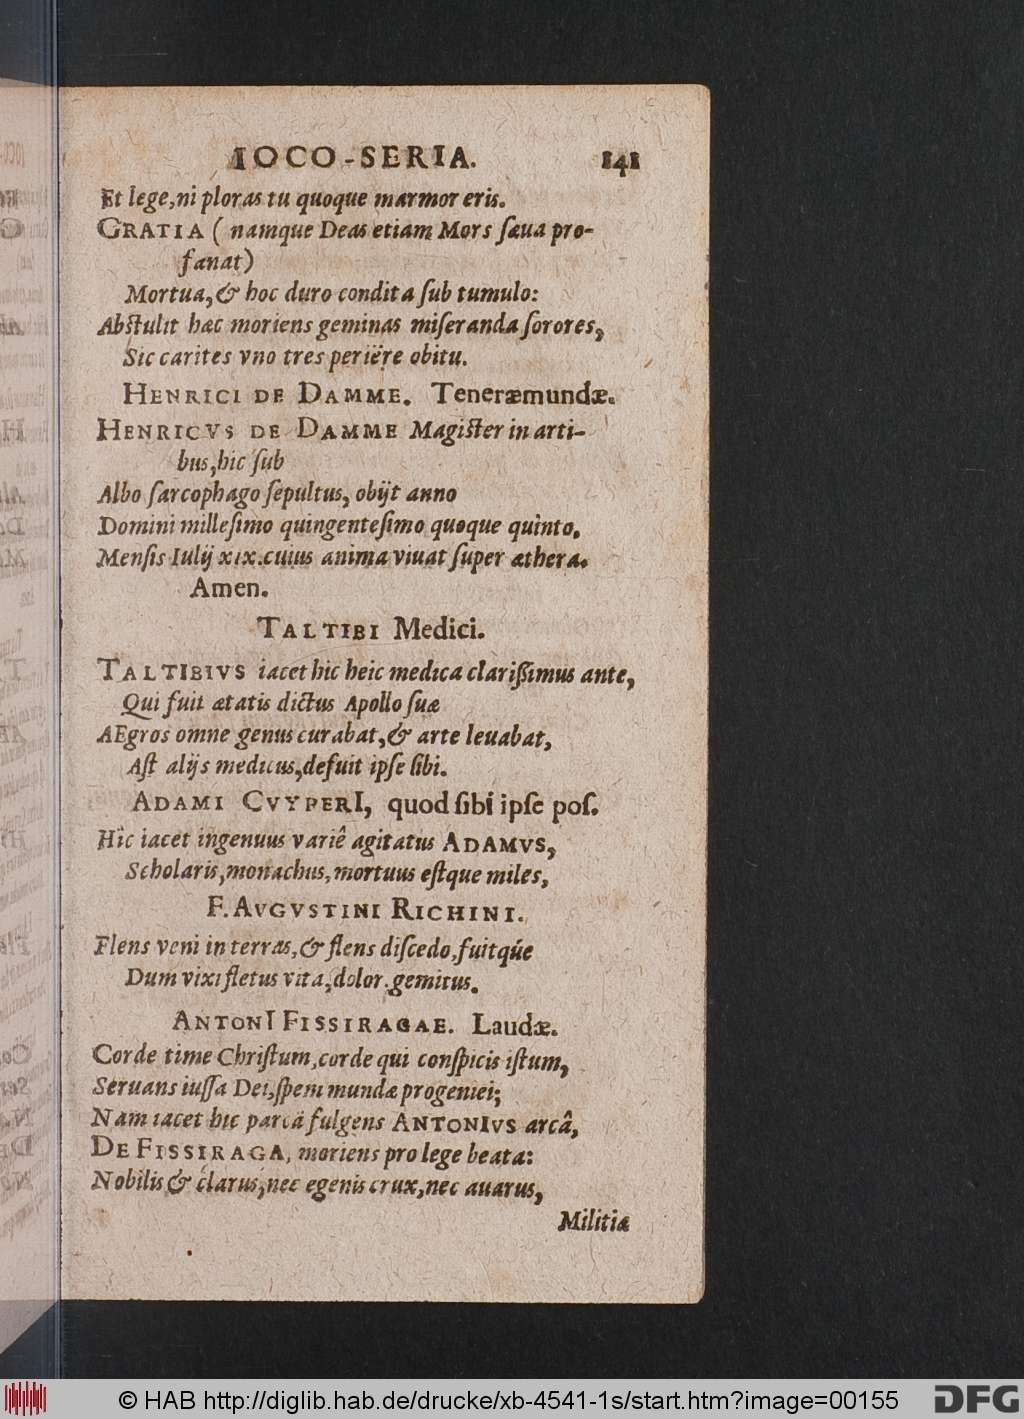 IOCO-SERIA. 141
Et lege, ni ploras tu quoque marmor eris.
GRATIA ( namque Deas etiam Mors sæua pro-
fanat)
Mortua, & hoc duro condita sub tumulo:
Abstulit hæc moriens geminas miseranda sorores,
Sic carites vno tres periëre obitu.
HENRICI DE DAMME. Teneræmundæ.
HENRICVS DE DAMME Magister in arti-
bus, hic sub
Albo sarcophago sepultus, obijt anno
Domini millesimo quingentesimo quoque quinto,
Mensis Iulij XIX. cuius anima viuat super æthera.
Amen.
TALTIBI Medici.
TALTIBIVS iacet hic heic medica clarissimus ante,
Qui fuit ætatis dictus Apollo suæ
AEgros omne genus curabat, & arte leuabat,
Ast alijs medicus, defuit ipse sibi.
ADAMI CVYPERI, quod sibi ipse pos.
Hîc iacet ingenuus variê agitatus ADAMVS,
Scholaris, monachus, mortuus estque miles,
F. AVGVSTINI RICHINI.
Flens veni in terras, & flens discedo, fuitqúe
Dum vixi fletus vita, dolor, gemitus.
ANTONI FISSIRAGAE. Laudæ.
Corde time Christum, corde qui conspicis istum,
Seruans iussa Dei, spem mundæ progeniei;
Nam iacet hic parcâ fulgens ANTONIVS arcâ,
DE FISSIRAGA, moriens pro lege beata:
Nobilis & clarus, nec egenis crux, nec auarus,
Militiæ
© HAB http://diglib.hab.de/drucke/xb-4541-1s/start.htm?image=00155
DFG